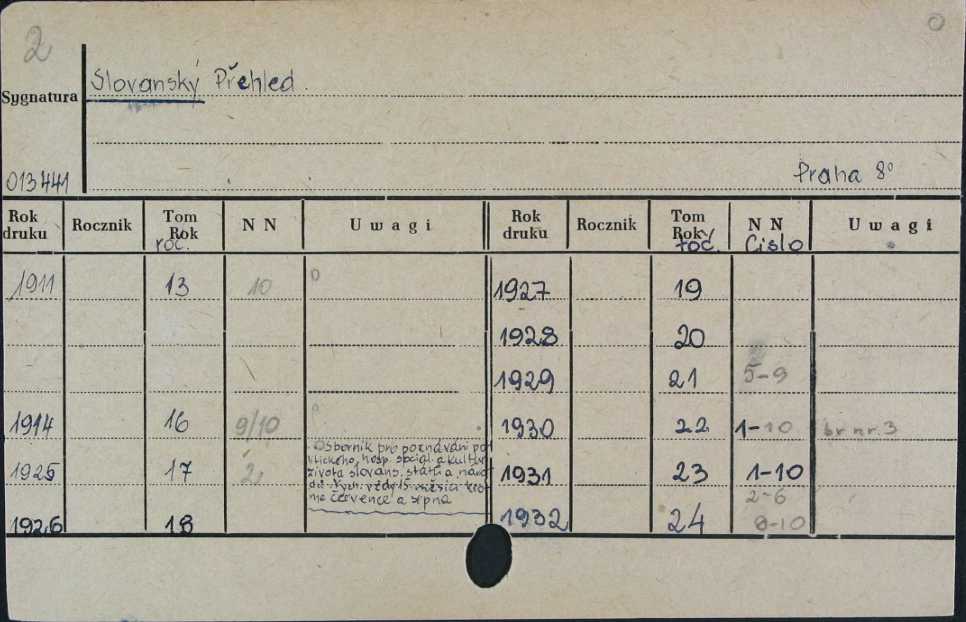 2
Slovanský Přehled
Sygnatura
Praha 8°
013441
Rok druku Rocznik Tom Rok roč. N N Uwagi Rok druku Rocznik Tom Rok roč. N N Cislo Uwagi
1911 13 10 1927 19
1928 20
1929 21 5-9
1914 16 9/10 1930 22 1-10 br. nr. 3
Osborník pro poznávání po
litického, hosp. social. a kultur
1925 17 2 1931 23 1-10
života slovans. států a náro
dů. Vych. vždy 15 měsíce kro
2-6
me července a srpna
1926 18 1932 24 8-10